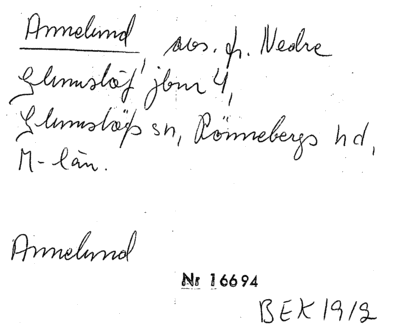 Annelund, avs. fr. Nedre
Glumslöf jbnr 4,
Glumslöfs sn, Rönnebergs hd,
M-län.
Annelund
Nr 16694
BEK 1912